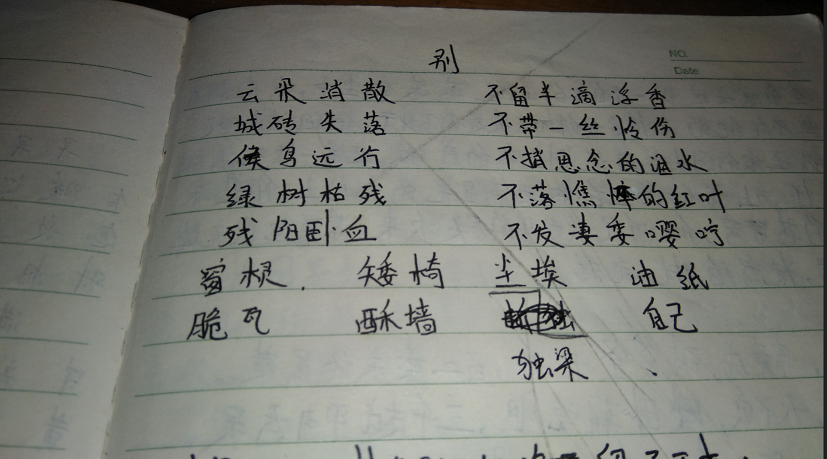 别
NO.
Date
云朵消散 不留半滴浮香
城砖失落 不带一丝怜伤
候鸟远行 不捎思念的泪水
绿树枯残 不落憔悴的红叶
残阳卧血 不发凄委嘤咛
窗棂. 矮椅 尘埃 油纸
脆瓦 酥墙 自己
独梁 、